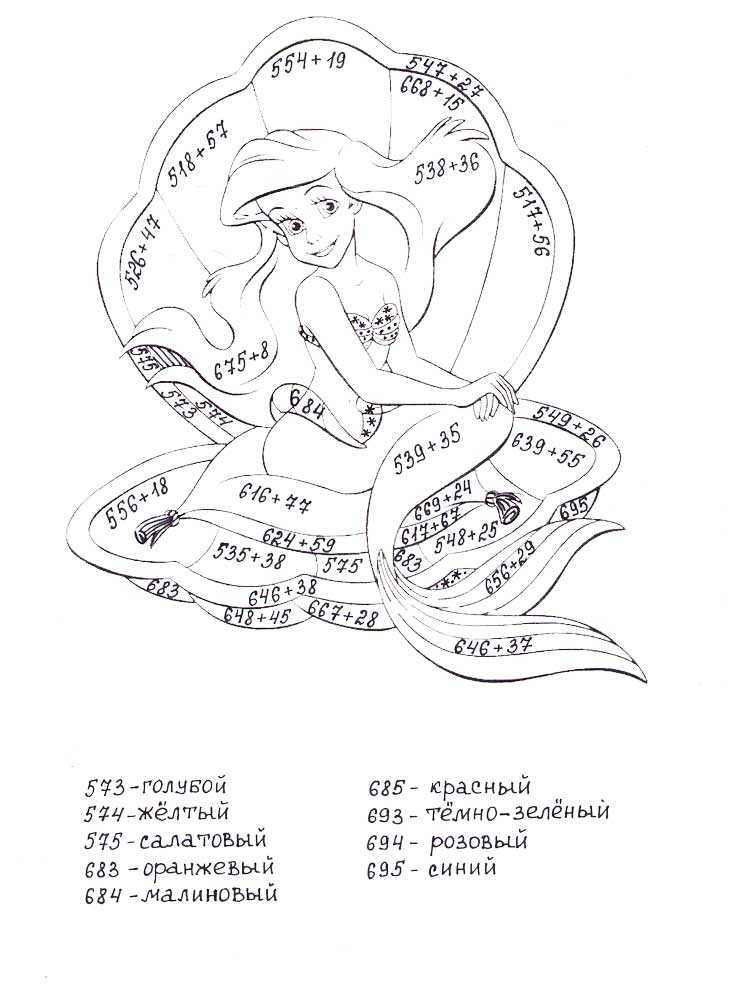 554+19
547+27
668+15
518+57
538+36
517+56
526+47
575
675+8
573
574
684
549+26
539+35
639+55
556+18
616+77
669+24
695
617+67
624+59
548+25
535+38
575
683
656+29
683
646+38
648+45
667+28
646+37
573-голубой
574-жёлтый
575-салатовый
683-оранжевый
684-малиновый
685- красный
693- тёмно-зелёный
694- розовый
695- синий